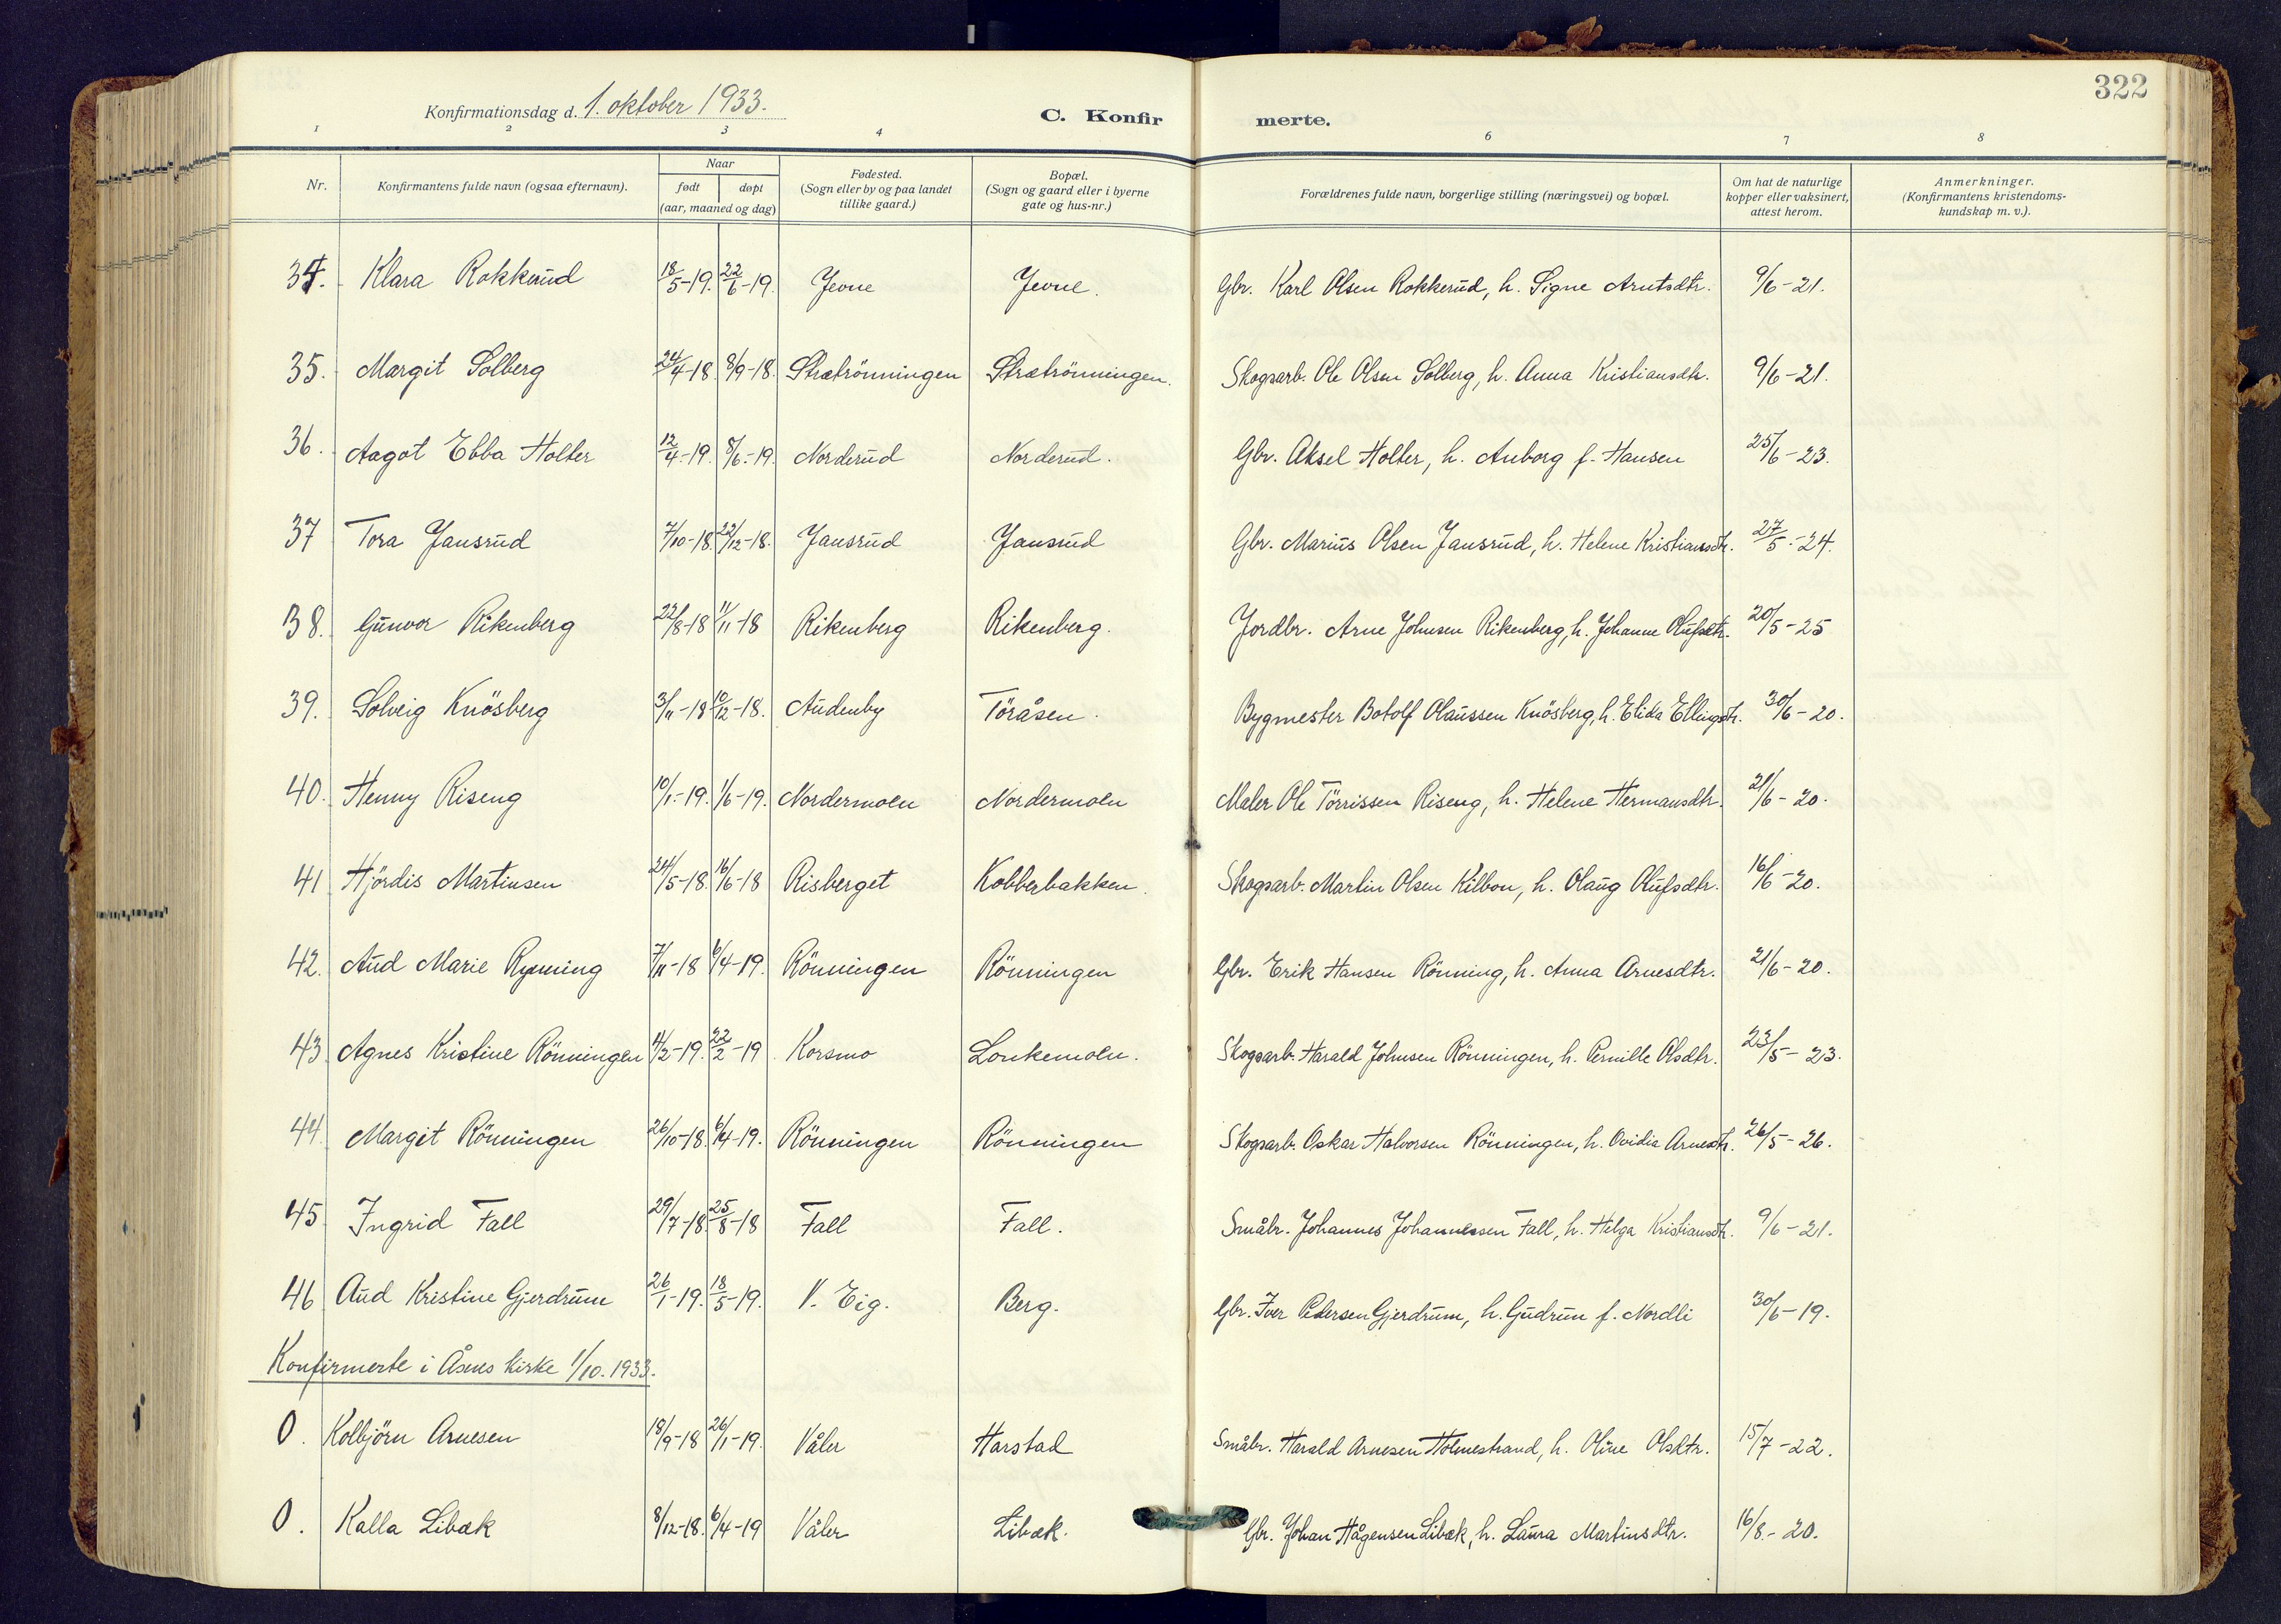 322
Konfirmationsdag d. 1. oktober 1933.
C. Konfirmerte.
1 2 3 4 6 7 8
Nr. | Konfirmantens fulde navn (ogsaa efternavn). | Naar født døpt (aar, maaned og dag) | Fødested. (Sogn eller by og paa landet tillike gaard.) | Bopæl. (Sogn og gaard eller i byerne gate og hus-nr.) | Forældrenes fulde navn, borgerlige stilling (næringsvei) og bopæl. | Om hat de naturlige kopper eller vaksinert, attest herom. | Anmerkninger. (Konfirmantens kristendomskundskap m. v.).
34. Klara Rokkerud 18/5-19. 22/6-19. Jevne Jevne. Gbr. Karl Olsen Rokkerud, h. Signe Arntsdtr. 9/6-21.
35. Margit Solberg 24/4-18. 8/9-18. Strætrönningen Strætrönningen. Skogsarb. Ole Olsen Solberg, h. Anna Kristiansdtr. 9/6-21.
36. Aagot Ebba Holter 12/4-19. 8/6-19. Norderud Norderud. Gbr. Aksel Holter, h. Anborg f. Hansen 25/6-23.
37 Tora Jansrud 7/10-18. 22/12-18. Jansrud Jansrud Gbr. Marius Olsen Jansrud, h. Helene Kristiansdtr. 27/5-24.
38. Gunvor Rikenberg 22/8-18 11/11-18 Rikenberg Rikenberg. Jordbr. Arne Johnsen Rikenberg, h. Johanne Olufsdtr. 20/5-25
39. Solveig Knösberg 3/11-18 10/12-18. Audenby Töråsen. Bygmester Botolf Olaussen Knösberg, h. Elida Ellingsdtr. 30/6-20.
40. Henny Riseng 10/1-19. 1/6-19. Nordermoen Nordermoen Maler Ole Törrissen Riseng, h. Helene Hermansdtr. 21/6-20.
41 Hjördis Martinsen 24/5-18. 16/6-18 Risberget Kobberbakken. Skogsarb. Martin Olsen Kilbon, h. Olaug Olufsdtr. 16/6-20.
42. Aud Marie Rynning 7/11-18 6/4-19. Rönningen Rönningen Gbr. Erik Hansen Rönning, h. Anna Arnesdtr. 21/6-20.
43 Agnes Kristine Rönningen 4/2-19. 22/2-19. Korsmo Lonkemoen. Skogsarb. Harald Johnsen Rönningen, h. Pernille Olsdtr. 23/5-23.
44 Margit Rönningen 26/10-18. 6/4-19. Rönningen Rönningen Skogsarb. Oskar Halvorsen Rönningen, h. Ovidia Arnesdtr. 26/5-26.
45 Ingrid Fall 29/7-18. 25/8-18 Fall Fall. Småbr. Johannes Johannessen Fall, h. Helga Kristiansdtr. 9/6-21.
46 Aud Kristine Gjerdrum 26/1-19. 18/5-19. V. Eig. Berg. Gbr. Iver Pedersen Gjerdrum, h. Gudrun f. Nordli 30/6-19.
Konfirmerte i Åsnes kirke 1/10. 1933.
0. Kolbjörn Arnesen 18/9-18 26/1-19. Våler Harstad Småbr. Harald Arnesen Holmestrand, h. Oline Olsdtr. 15/7-22.
0. Kalla Libæk 8/12-18. 6/4-19 Våler Libæk. Gbr. Johan Hågensen Libæk, h. Laura Martinsdtr. 16/8-20.